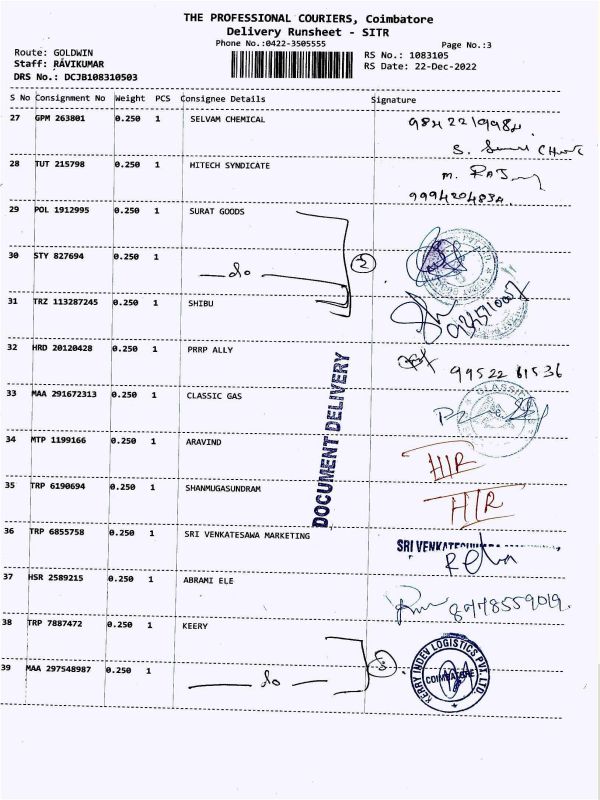 THE PROFESSIONAL COURIERS, Coimbatore
Delivery Runsheet - SITR
Phone No.:0422-3505555
Page No.:3
Route: GOLDWIN
RS No.: 1083105
Staff: RAVIKUMAR
RS Date: 22-Dec-2022
DRS No.: DCJB108310503
S No Consignment No Weight PCS Consignee Details Signature
27 GPM 263801 0.250 1 SELVAM CHEMICAL
28 TUT 215798 0.250 1 HITECH SYNDICATE
M. RAJ
9994204834
29 POL 1912995 0.250 1 SURAT GOODS
30 STY 827694 0.250 1 —do— 2
31 TRZ 113287245 0.250 1 SHIBU
32 HRD 20120428 0.250 1 PRRP ALLY
99522 61536
33 MAA 291672313 0.250 1 CLASSIC GAS
CLASSIC
34 MTP 1199166 0.250 1 ARAVIND
HIR
35 TRP 6190694 0.250 1 SHANMUGASUNDRAM
HIR
DOCUMENT DELIVERY
36 TRP 6855758 0.250 1 SRI VENKATESAWA MARKETING
37 HSR 2589215 0.250 1 ABRAMI ELE
38 TRP 7887472 0.250 1 KEERY
39 MAA 297548987 0.250 1 —do—
KERRY INDEV LOGISTICS PVT. LTD.
COIMBATORE